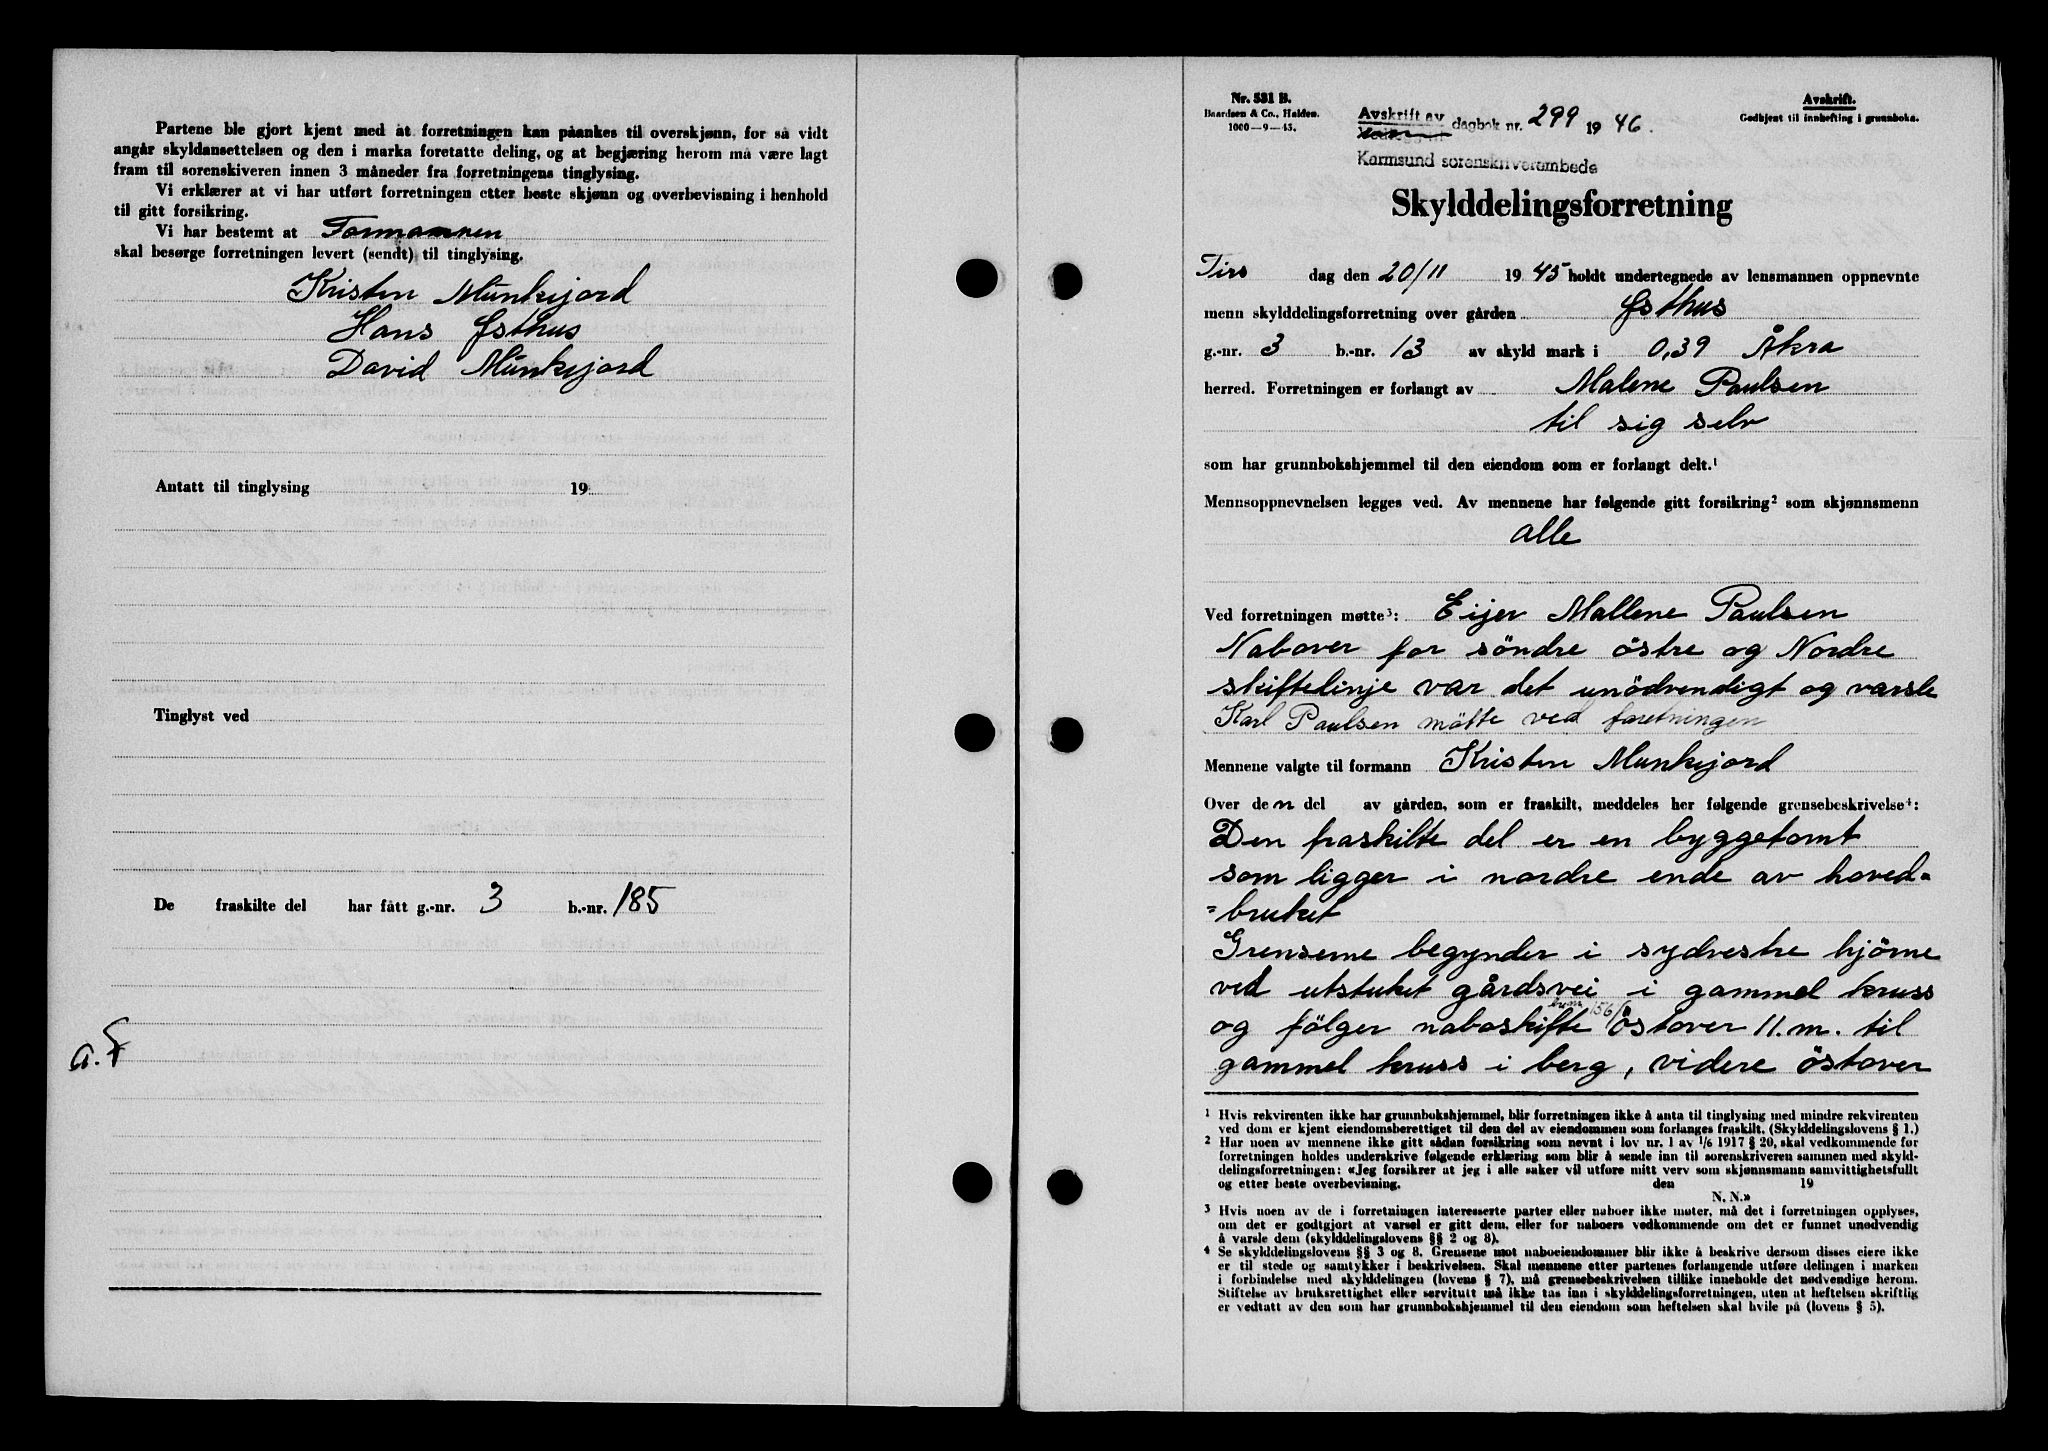 Partene ble gjort kjent med at forretningen kan påankes til overskjønn, for så vidt
angår skyldansettelsen og den i marka foretatte deling, og at begjæring herom må være lagt
fram til sorenskriveren innen 3 måneder fra forretningens tinglysing.
Vi erklærer at vi har utført forretningen etter beste skjønn og overbevisning i henhold
til gitt forsikring.
Vi har bestemt at Formannen
skal besørge forretningen levert (sendt) til tinglysing.
Kristen Munkejord
Hans Østhus
David Munkejord
Antatt til tinglysing 19
Tinglyst ved
De fraskilte del har fått g.-nr. 3 b.-nr. 185
Nr. 531 B.
Baardsen & Co., Halden.
1000—9—45.
Avskrift av
dagbok nr. 299 1946.
Karmsund sorenskriverembede
Avskrift.
Godkjent til innhefting i grunnboka.
Skylddelingsforretning
Tirs dag den 20/11 1945 holdt undertegnede av lensmannen oppnevnte
menn skylddelingsforretning over gården Østhus
g.-nr. 3 b.-nr. 13 av skyld mark i 0,39 Åkra
herred. Forretningen er forlangt av Malene Paulsen
til sig selv
som har grunnbokshjemmel til den eiendom som er forlangt delt.¹
Mennsoppnevnelsen legges ved. Av mennene har følgende gitt forsikring² som skjønnsmenn
alle
Ved forretningen møtte³: Eijer Mallene Paulsen
Naboer for söndre östre og Nordre
skiftelinje var det unödvendigt og varsle
Karl Paulsen mötte ved foretningen
Mennene valgte til formann Kristen Munkejord
Over den del av gården, som er fraskilt, meddeles her følgende grensebeskrivelse⁴:
Den fraskilte del er en byggetomt
som ligger i nordre ende av hoved-
=bruket
Grenserne begynder i sydvestre hjörne
ved utstuket gårdsvei i gammel kruss
brnr 156/
og fölger naboskifte östover 11.m. til
gammel kruss i berg, videre östover
1 Hvis rekvirenten ikke har grunnbokshjemmel, blir forretningen ikke å anta til tinglysing med mindre rekvirenten
ved dom er kjent eiendomsberettiget til den del av eiendommen som forlanges fraskilt. (Skylddelingslovens § 1.)
2 Har noen av mennene ikke gitt sådan forsikring som nevnt i lov nr. 1 av 1/6 1917 § 20, skal vedkommende før
forretningen holdes underskrive følgende erklæring som blir å sende inn til sorenskriveren sammen med skyld-
delingsforretningen: «Jeg forsikrer at jeg i alle saker vil utføre mitt verv som skjønnsmann samvittighetsfullt
og etter beste overbevisning. den 19
N. N.»
3 Hvis noen av de i forretningen interesserte parter eller naboer ikke møter, må det i forretningen opplyses,
om det er godtgjort at varsel er gitt dem, eller for naboers vedkommende om det er funnet unødvendig
å varsle dem (skylddelingslovens §§ 2 og 8).
4 Se skylddelingslovens §§ 3 og 8. Grensene mot naboeiendommer blir ikke å beskrive dersom disses eiere ikke
er til stede og samtykker i beskrivelsen. Skal mennene etter partenes forlangende utføre delingen i marken
i forbindelse med skylddelingen (lovens § 7), må grensebeskrivelsen tillike inneholde det nødvendige herom.
Stiftelse av bruksrettighet eller servitutt må ikke tas inn i skylddelingsforretningen, uten at heftelsen skriftlig
er vedtatt av den som har grunnbokshjemmel til den eiendom som heftelsen skal hvile på (lovens § 5).